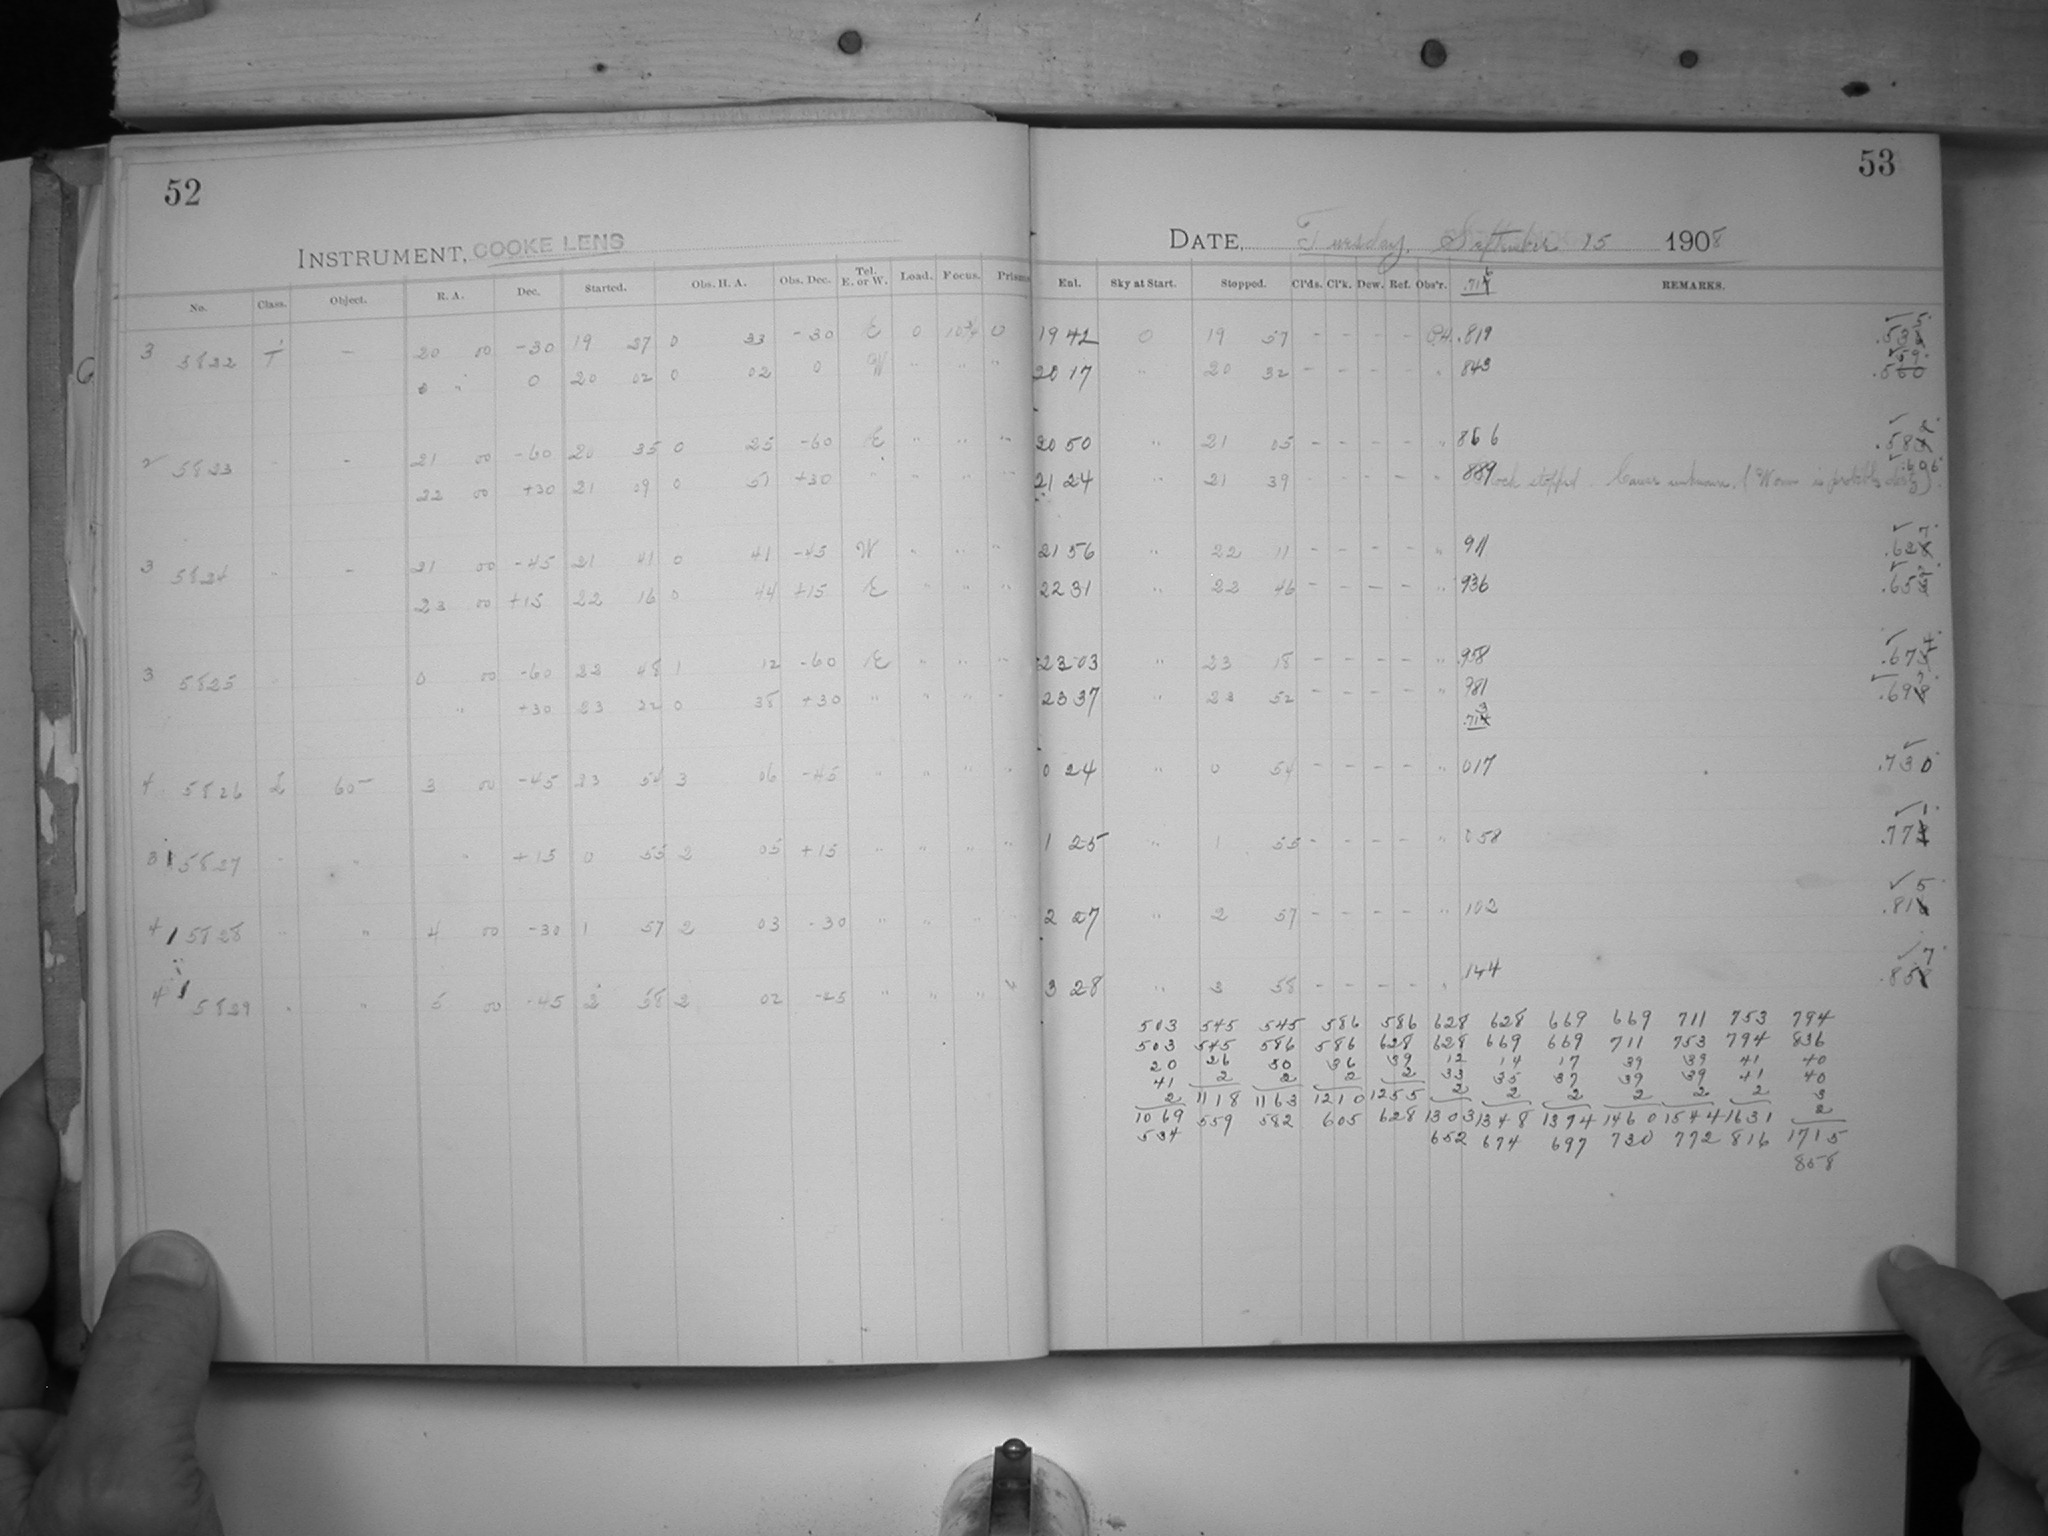 52
INSTRUMENT, COOKE LENS
No. Class. Object. R. A. Dec. Started. Obs. H. A. Obs. Dec. Tel. E. or W. Load. Focus. Prisms
3 5822 T — 20 00 -30 19 27 0 33 -30 E 0 10 3/4 0
" 0 20 02 0 02 0 W " " "
2 5823 " — 21 00 -60 20 35 0 25 -60 E " " "
22 00 +30 21 09 0 51 +30 " " " "
3 5824 " — 21 00 -45 21 41 0 41 -45 W " " "
23 00 +15 22 16 0 44 +15 E " " "
3 5825 " 0 00 -60 22 48 1 12 -60 E " " "
" +30 23 22 0 38 +30 " " " "
4 5826 L 60— 3 00 -45 23 54 3 06 -45 " " " "
3 1 5827 " " " +15 0 55 2 05 +15 " " " "
4 1 5828 " " 4 00 -30 1 57 2 03 -30 " " " "
4 1 5829 " " 5 00 -45 2 58 2 02 -45 " " " "
53
DATE, Tuesday, September 15 1908
Enl. Sky at Start. Stopped. Cl'ds. Cl'k. Dew. Ref. Obs'r. .716 REMARKS.
19 42 0 19 57 - - - - .819 .535
20 17 " 20 32 - - - - " 843 .559
20 50 " 21 05 - - - - " 866 .582
21 24 " 21 39 - - - - " 889 Clock stopped. Cause unknown. (Worm is probably dirty) .606
21 56 " 22 11 - - - - " 911 .627
22 31 " 22 46 - - - - " 936 .652
23 03 " 23 18 - - - - " .958 .674
23 37 " 23 52 - - - - " 981 .697
.713
0 24 " 0 54 - - - - " 017 .730
1 25 " 1 55 - - - - " 058 .771
2 27 " 2 57 - - - - " 102 .815
3 28 " 3 58 - - - - " 144 .857
503 545 545 586 586 628 628 669 669 711 753 794
503 545 586 586 628 628 669 669 711 753 794 836
20 26 30 36 39 12 14 17 39 39 41 40
41 2 2 2 2 33 35 37 39 39 41 40
2 1118 1163 1210 1255 2 2 2 2 2 2 3
1069 559 582 605 628 1303 1348 1394 1460 1544 1631 2
534 652 674 697 730 772 816 1715
858